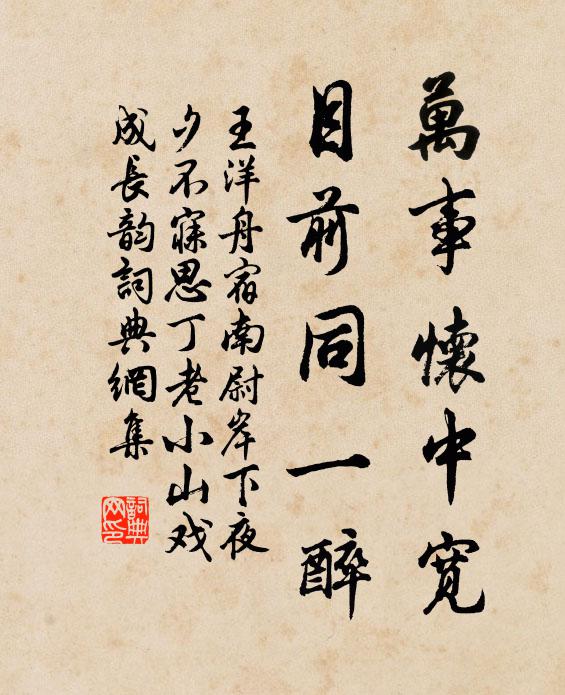 萬事懷中寬
目前同一醉
王洋舟宿南尉岸下夜
少不寐思丁老小山戏
成長韵詞典網集
詞典网印